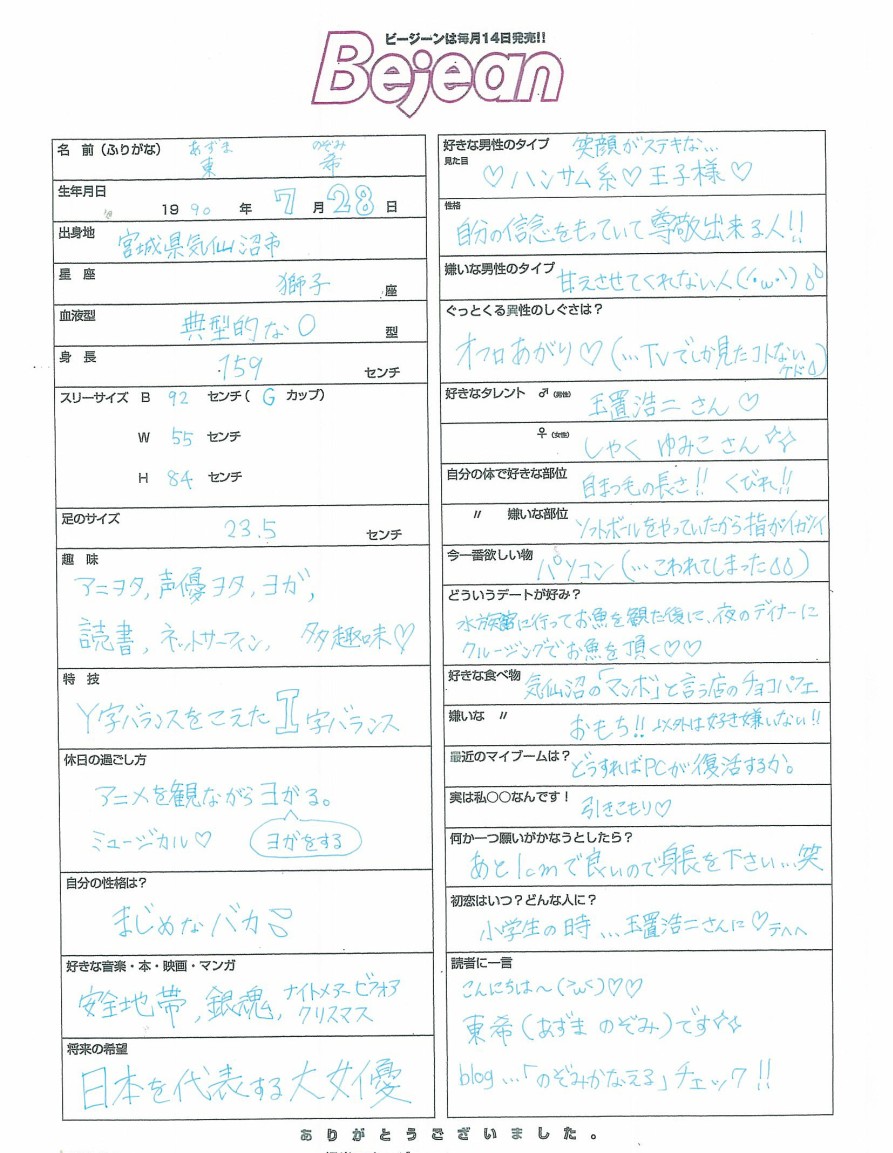 ビージーンは毎月14日発売!!
Bejean
名 前(ふりがな) あずま のぞみ
東 希
生年月日
1990年 7月28日
出身地
宮城県気仙沼市
星 座
獅子 座
血液型
典型的なO 型
身 長
159 センチ
スリーサイズ B 92 センチ( G カップ)
W 55 センチ
H 84 センチ
足のサイズ
23.5 センチ
趣 味
アニヲタ, 声優ヲタ, ヨガ,
読書, ネットサーフィン, 多趣味♡
特 技
Y字バランスをこえたI字バランス
休日の過ごし方
アニメを観ながらヨガる。
ミュージカル♡ ヨガをする
自分の性格は?
まじめなバカ
好きな音楽・本・映画・マンガ
安全地帯, 銀魂, ナイトメアービフォア
クリスマス
将来の希望
日本を代表する大女優
好きな男性のタイプ 笑顔がステキな…
見た目
♡ハンサム系♡王子様♡
性格
自分の信念をもっていて尊敬出来る人!!
嫌いな男性のタイプ
甘えさせてくれない人(´・ω・`)
ぐっとくる異性のしぐさは?
オフロあがり♡(…TVでしか見たコトない
ケド)
好きなタレント ♂(男性) 玉置浩二さん♡
♀(女性) しゃく ゆみこさん☆☆
自分の体で好きな部位
自まつ毛の長さ!! くびれ!!
〃 嫌いな部位
ソフトボールをやっていたから指がイガイガ
今一番欲しい物
パソコン(…こわれてしまった)
どういうデートが好み?
水族館に行ってお魚を観た後に、夜のディナーに
クルージングでお魚を頂く♡♡
好きな食べ物
気仙沼の「マンボ」と言う店のチョコパフェ
嫌いな 〃
おもち!! 以外は好き嫌いない!!
最近のマイブームは?
どうすればPCが復活するか。
実は私○○なんです!
引きこもり♡
何か一つ願いがかなうとしたら?
あと1cmで良いので身長を下さい…笑
初恋はいつ?どんな人に?
小学生の時…玉置浩二さんに♡テヘヘ
読者に一言
こんにちは〜(>ω<)♡♡
東希(あずま のぞみ)です☆☆
blog…「のぞみかなえる」チェック!!
ありがとうございました。